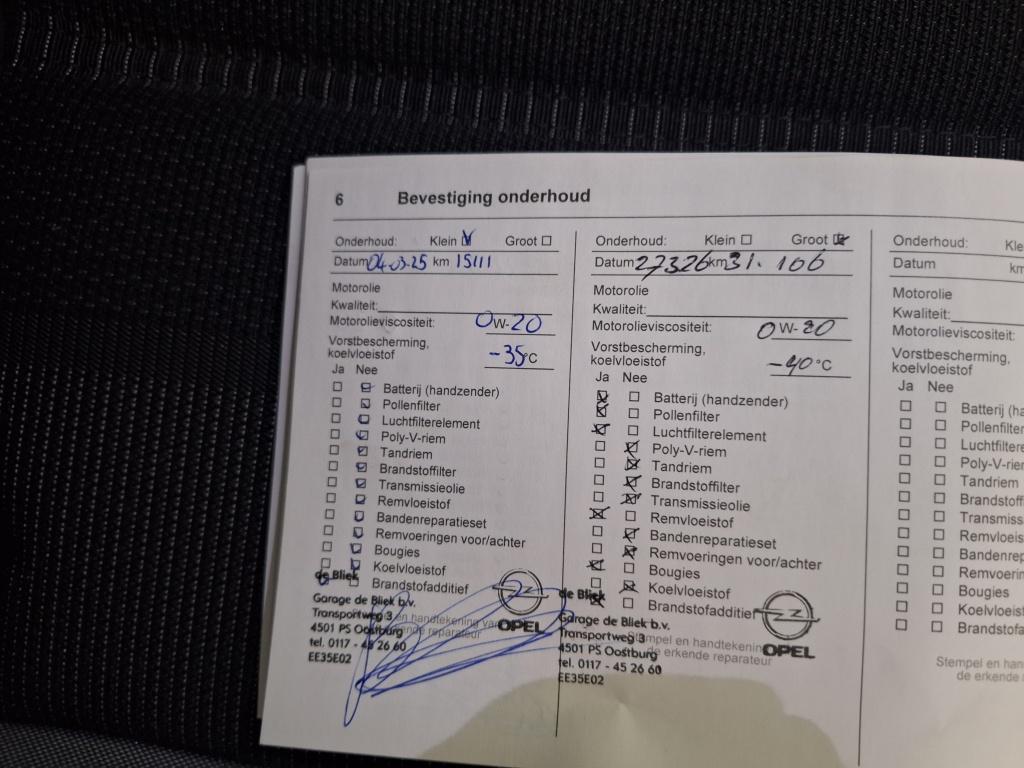 6 Bevestiging onderhoud
Onderhoud: Klein Groot
Datum 04-03-25 km 15111
Motorolie
Kwaliteit:
Motorolieviscositeit: 0W-20
Vorstbescherming,
koelvloeistof -35°C
Ja Nee
Batterij (handzender)
Pollenfilter
Luchtfilterelement
Poly-V-riem
Tandriem
Brandstoffilter
Transmissieolie
Remvloeistof
Bandenreparatieset
Remvoeringen voor/achter
Bougies
Koelvloeistof
Brandstofadditief
de Bliek
Garage de Bliek b.v.
Transportweg 3
en handtekening van
4501 PS Oostburg
reparateur
tel. 0117 - 45 26 60
EE35E02
OPEL
Onderhoud: Klein Groot
Datum 27326 km 31.106
Motorolie
Kwaliteit:
Motorolieviscositeit: 0W-20
Vorstbescherming,
koelvloeistof -40°C
Ja Nee
Batterij (handzender)
Pollenfilter
Luchtfilterelement
Poly-V-riem
Tandriem
Brandstoffilter
Transmissieolie
Remvloeistof
Bandenreparatieset
Remvoeringen voor/achter
Bougies
Koelvloeistof
Brandstofadditief
de Bliek
Garage de Bliek b.v.
Transportweg 3
Stempel en handtekening
4501 PS Oostburg
de erkende reparateur
tel. 0117 - 45 26 60
EE35E02
OPEL
Onderhoud: Kle
Datum km
Motorolie
Kwaliteit:
Motorolieviscositeit:
Vorstbescherming,
koelvloeistof
Ja Nee
Batterij (ha
Pollenfilter
Luchtfiltere
Poly-V-riem
Tandriem
Brandstoff
Transmiss
Remvloeis
Bandenrep
Remvoerin
Bougies
Koelvloeist
Brandstofa
Stempel en han
de erkende